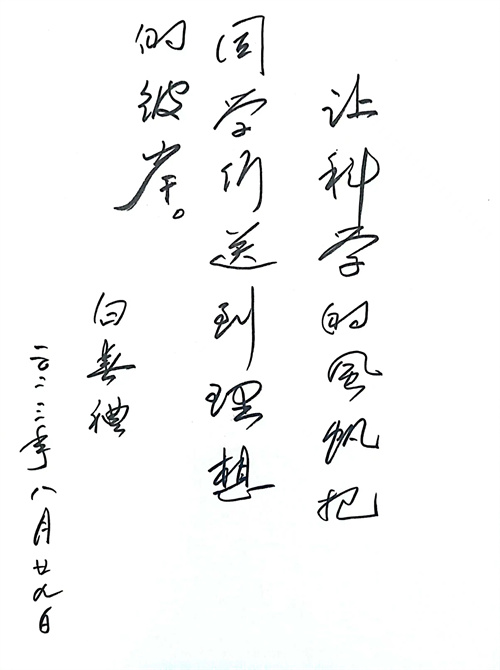 让科学的風帆把
同学们送到理想
的彼岸。
白春禮
二〇二三年八月廿九日